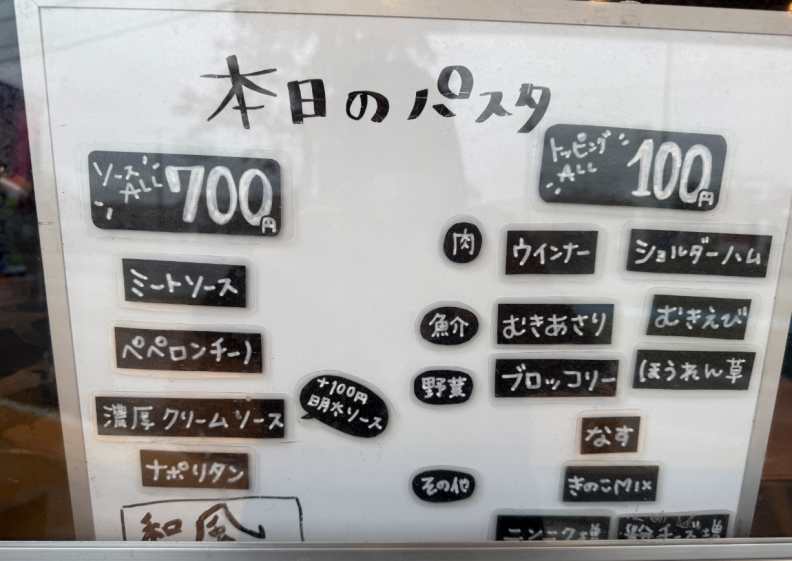 本日のパスタ
ソースALL 700円
ミートソース
ペペロンチーノ
濃厚クリームソース
+100円
明太ソース
ナポリタン
和風
トッピングALL 100円
肉 ウインナー ショルダーハム
魚介 むきあさり むきえび
野菜 ブロッコリー ほうれん草
なす
その他 きのこMIX
ニンニク増 粉チーズ増